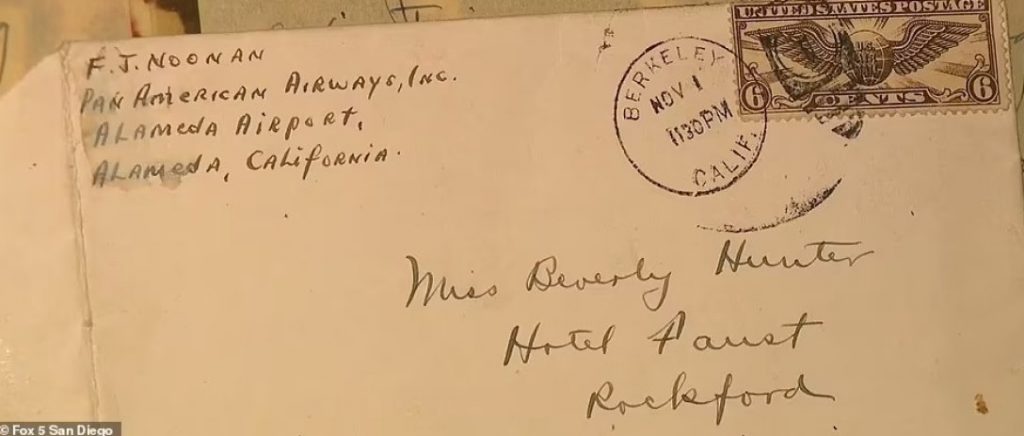 F. J. NOONAN
PAN AMERICAN AIRWAYS, INC.
ALAMEDA AIRPORT,
ALAMEDA, CALIFORNIA.
BERKELEY
NOV 1
1130 PM
CALIF.
UNITED STATES POSTAGE
6 CENTS 6
Miss Beverly Hunter
Hotel Faust
Rockford
© Fox 5 San Diego